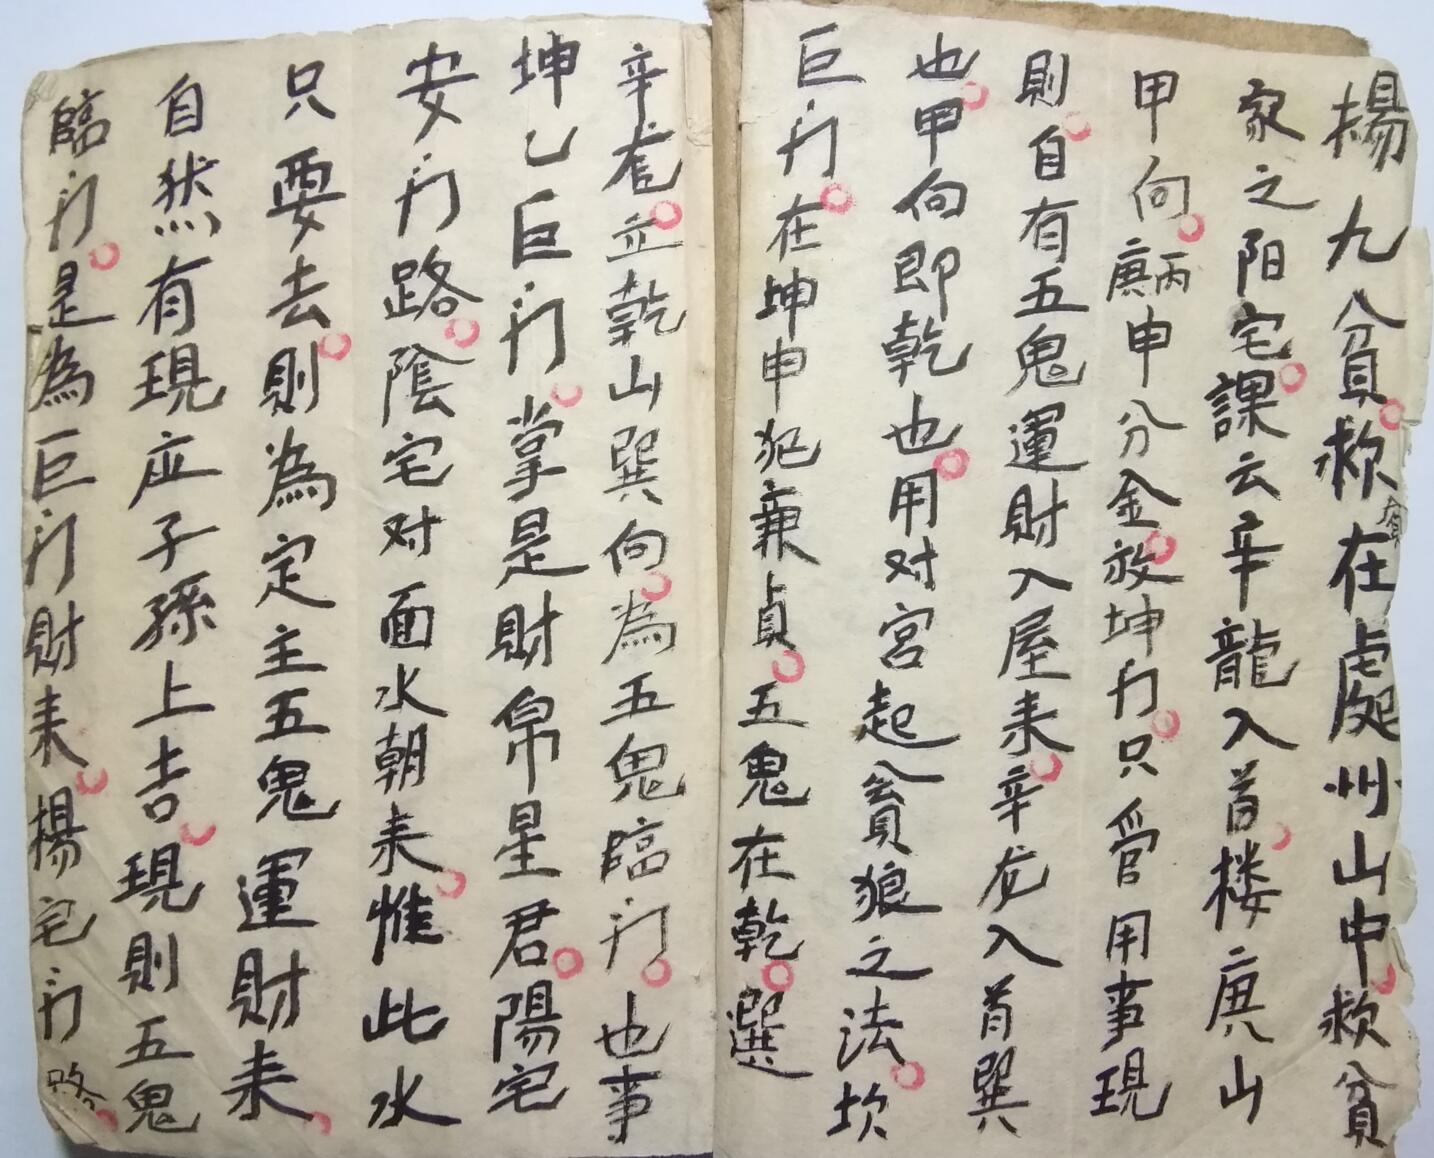 楊九貧救貧在處州山中救貧
家之阳宅課云辛龍入首楼庚山
甲向庚丙申分金放坤门只管用事現
則自有五鬼運財入屋来辛龙入首巽
也甲向即乾也用对宮起貪狼之法坎
巨门在坤申犯兼貞五鬼在乾選
辛危立乾山巽向為五鬼臨门也事
坤乙巨门掌是財帛星君陽宅
安门路陰宅对面水朝来惟此水
只要去則為定主五鬼運財来
自然有現应子孫上吉現則五鬼
臨门是為巨门財来楊宅门路